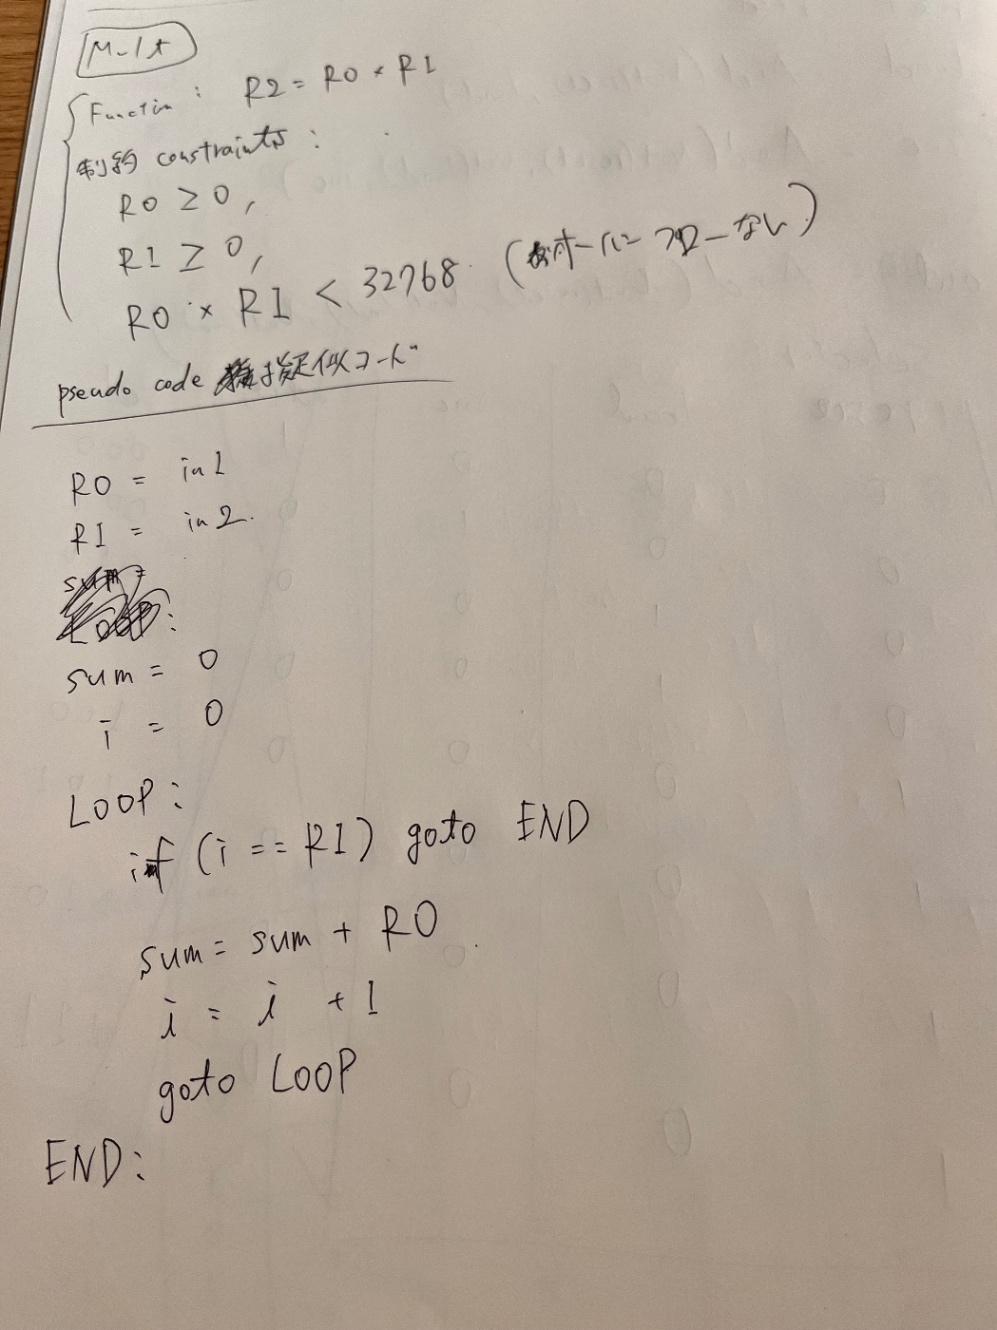 Mult
Function: R2 = R0 × R1
制約 constraints:
R0 ≥ 0,
R1 ≥ 0,
R0 × R1 < 32768 (オーバーフローない)
pseudo code 擬似コード
R0 = in1
R1 = in2.
sum =
LOOP:
sum = 0
i = 0
LOOP:
if (i == R1) goto END
sum = sum + R0
i = i + 1
goto LOOP
END: